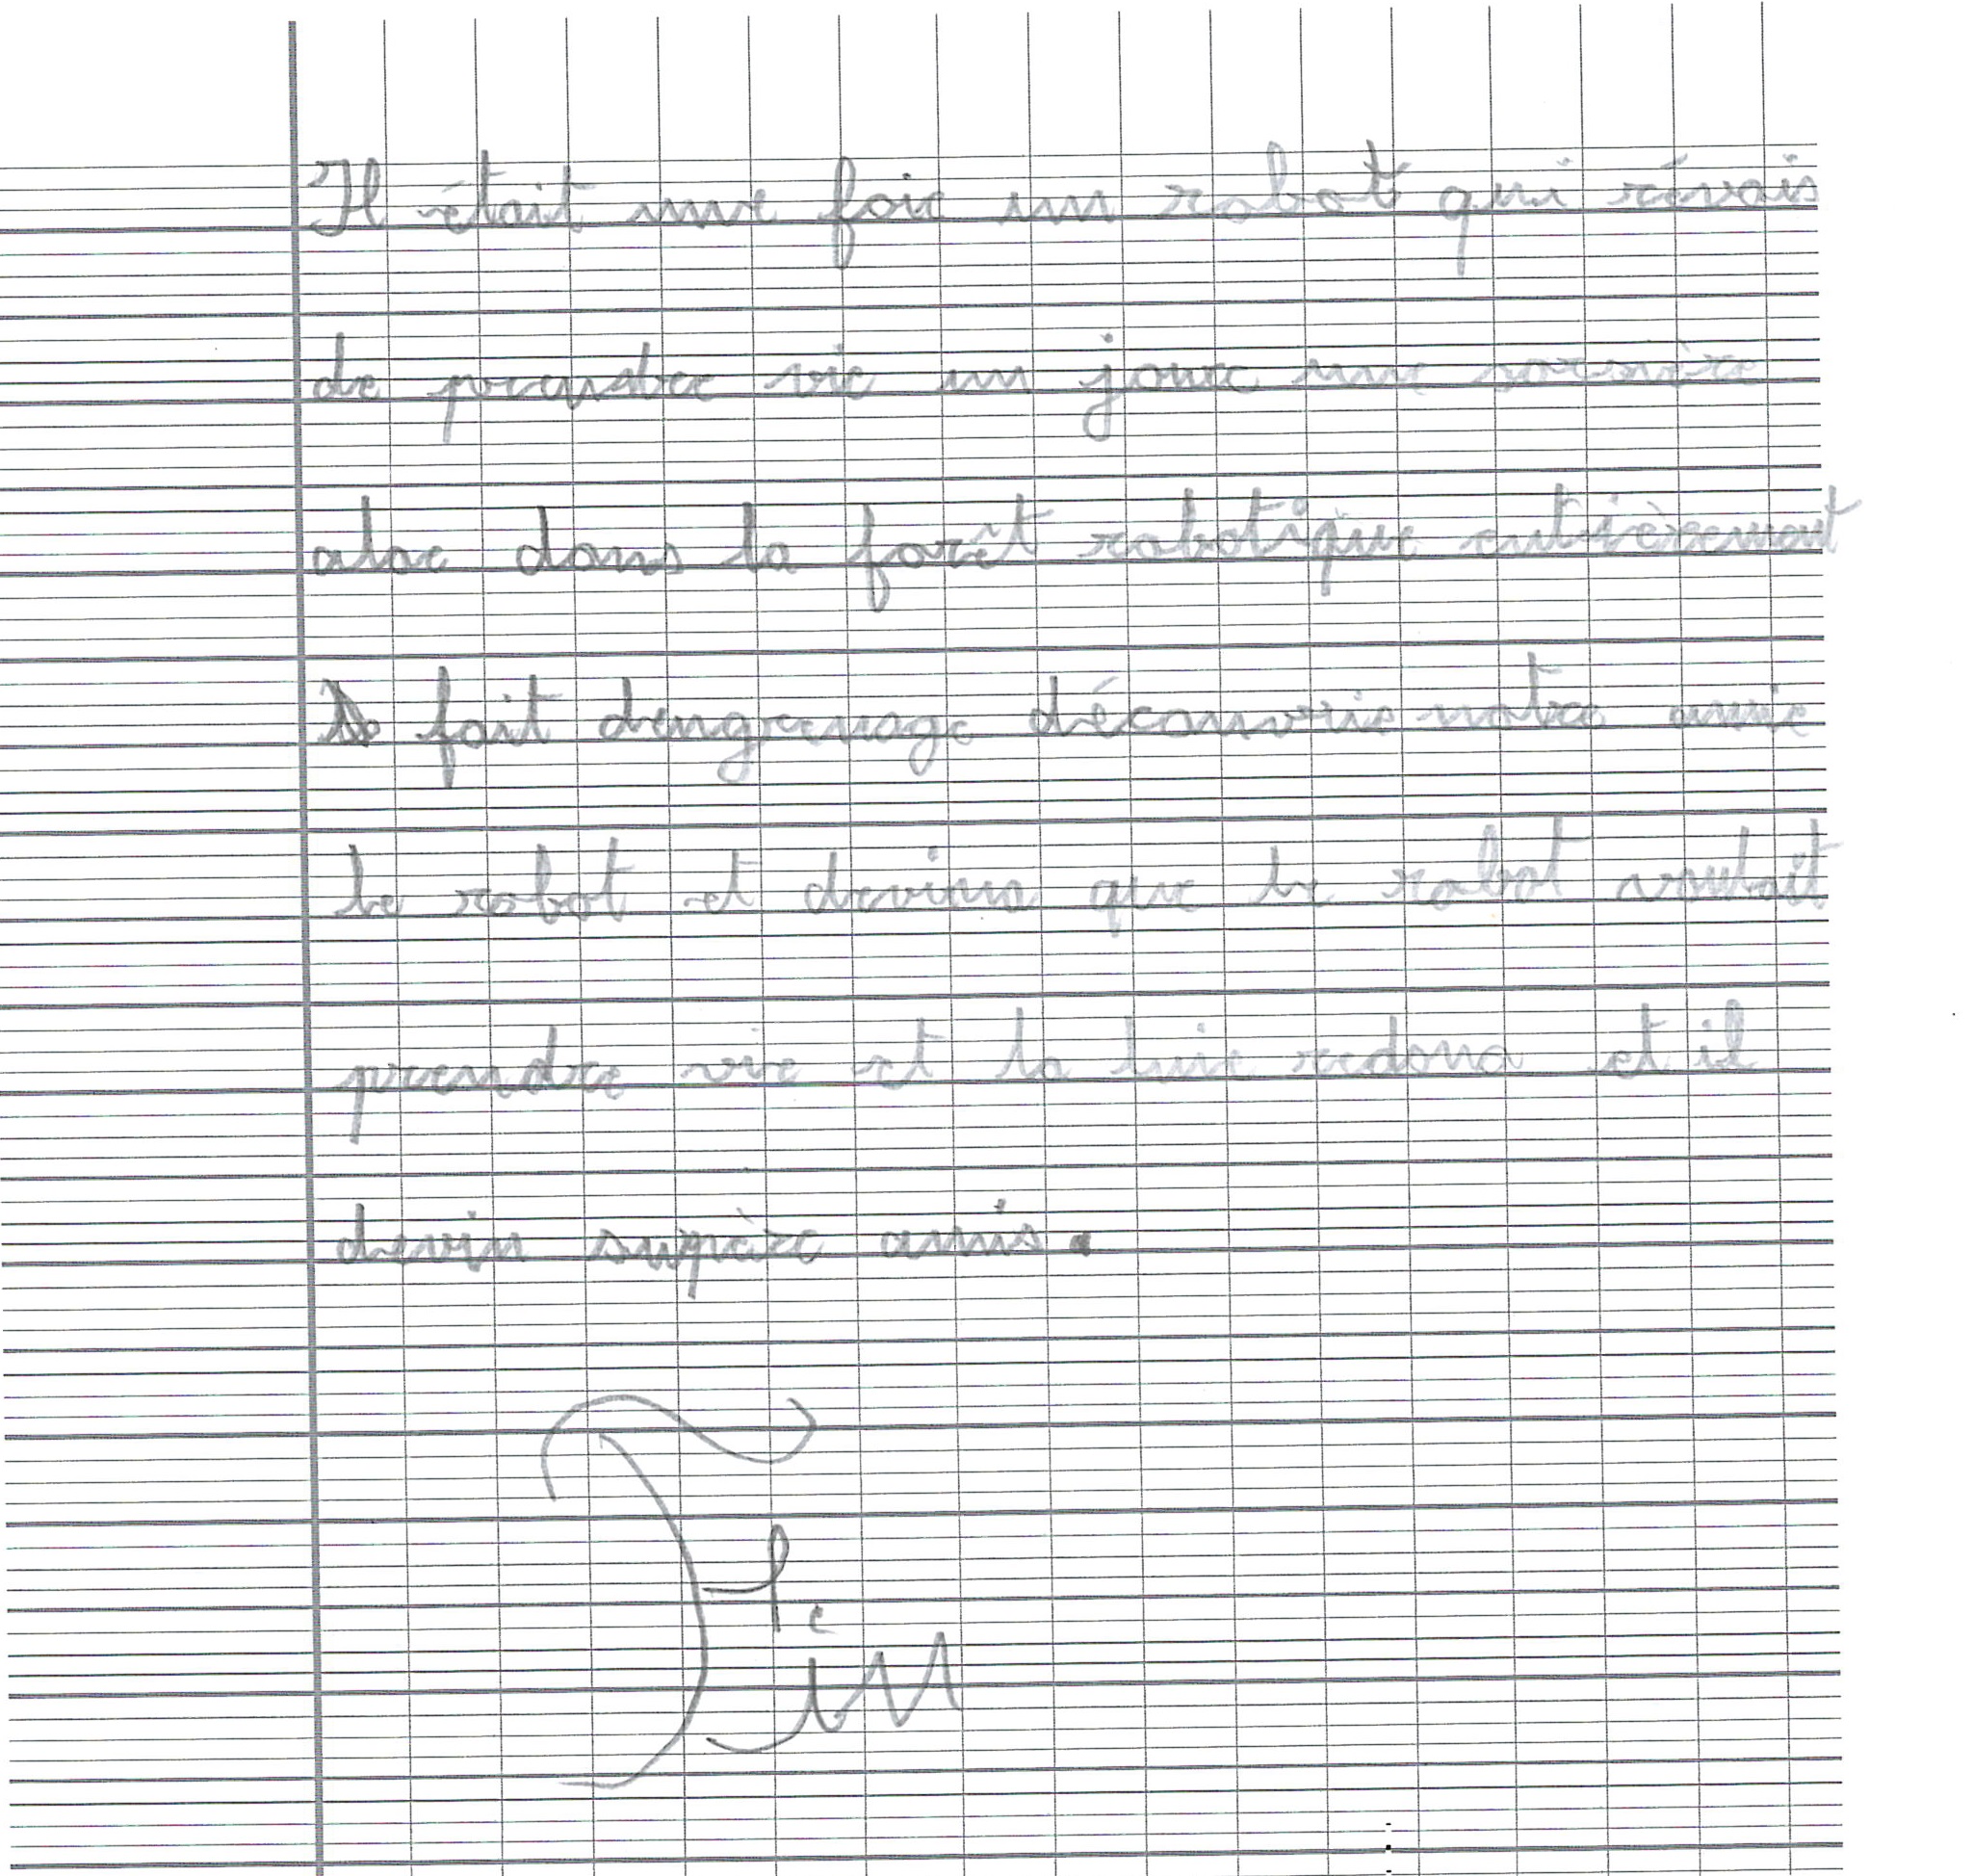 Il était une foie un robot qui rêvais
de prendre vie un joure une sorsière
alac dans la forêt robotique entièrement
fait dengrenage découvrie notre amie
le robot et devina que le robot voulait
prendre vie et la luie redona et il
devin supère amis.
Tim